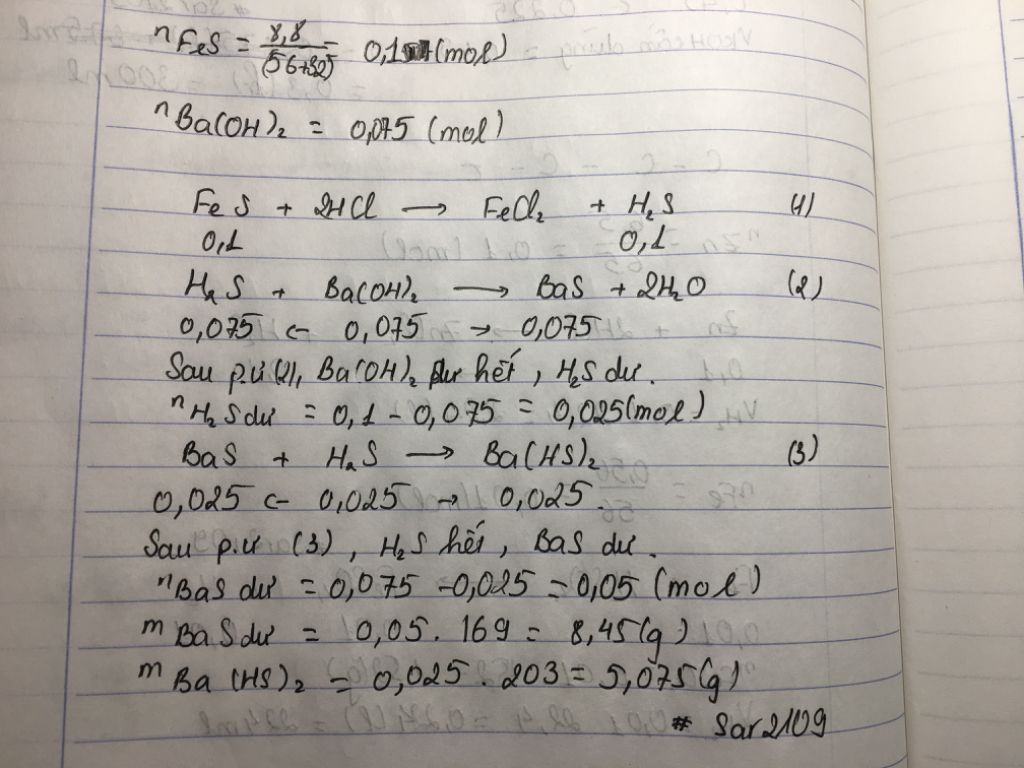 nFeS = 8,8/(56+32) = 0,1 (mol)
nBa(OH)₂ = 0,075 (mol)
FeS + 2HCl → FeCl₂ + H₂S (1)
0,1 0,1
H₂S + Ba(OH)₂ → BaS + 2H₂O (2)
0,075 ← 0,075 → 0,075
Sau p.ư (2), Ba(OH)₂ hết, H₂S dư.
nH₂S dư = 0,1 - 0,075 = 0,025 (mol)
BaS + H₂S → Ba(HS)₂ (3)
0,025 ← 0,025 → 0,025.
Sau p.ư (3), H₂S hết, BaS dư.
nBaS dư = 0,075 - 0,025 = 0,05 (mol)
mBaS dư = 0,05. 169 = 8,45 (g)
mBa(HS)₂ = 0,025. 203 = 5,075 (g)
# Sar2109